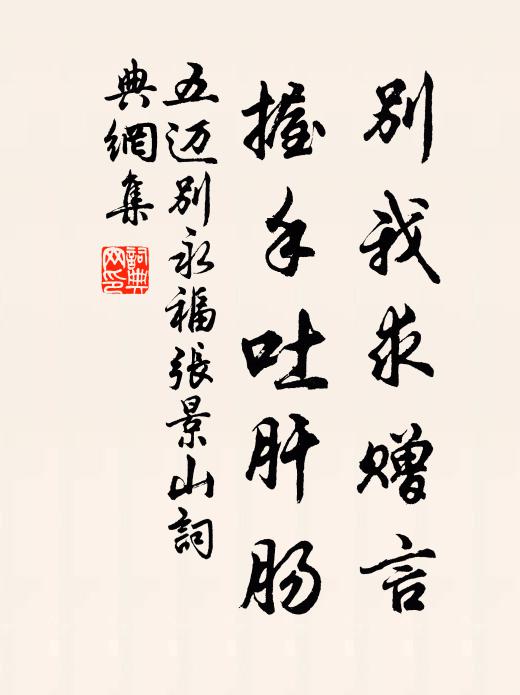 别我求赠言
握手吐肝肠
五迈别永福張景山詞
典網集
詞典网印